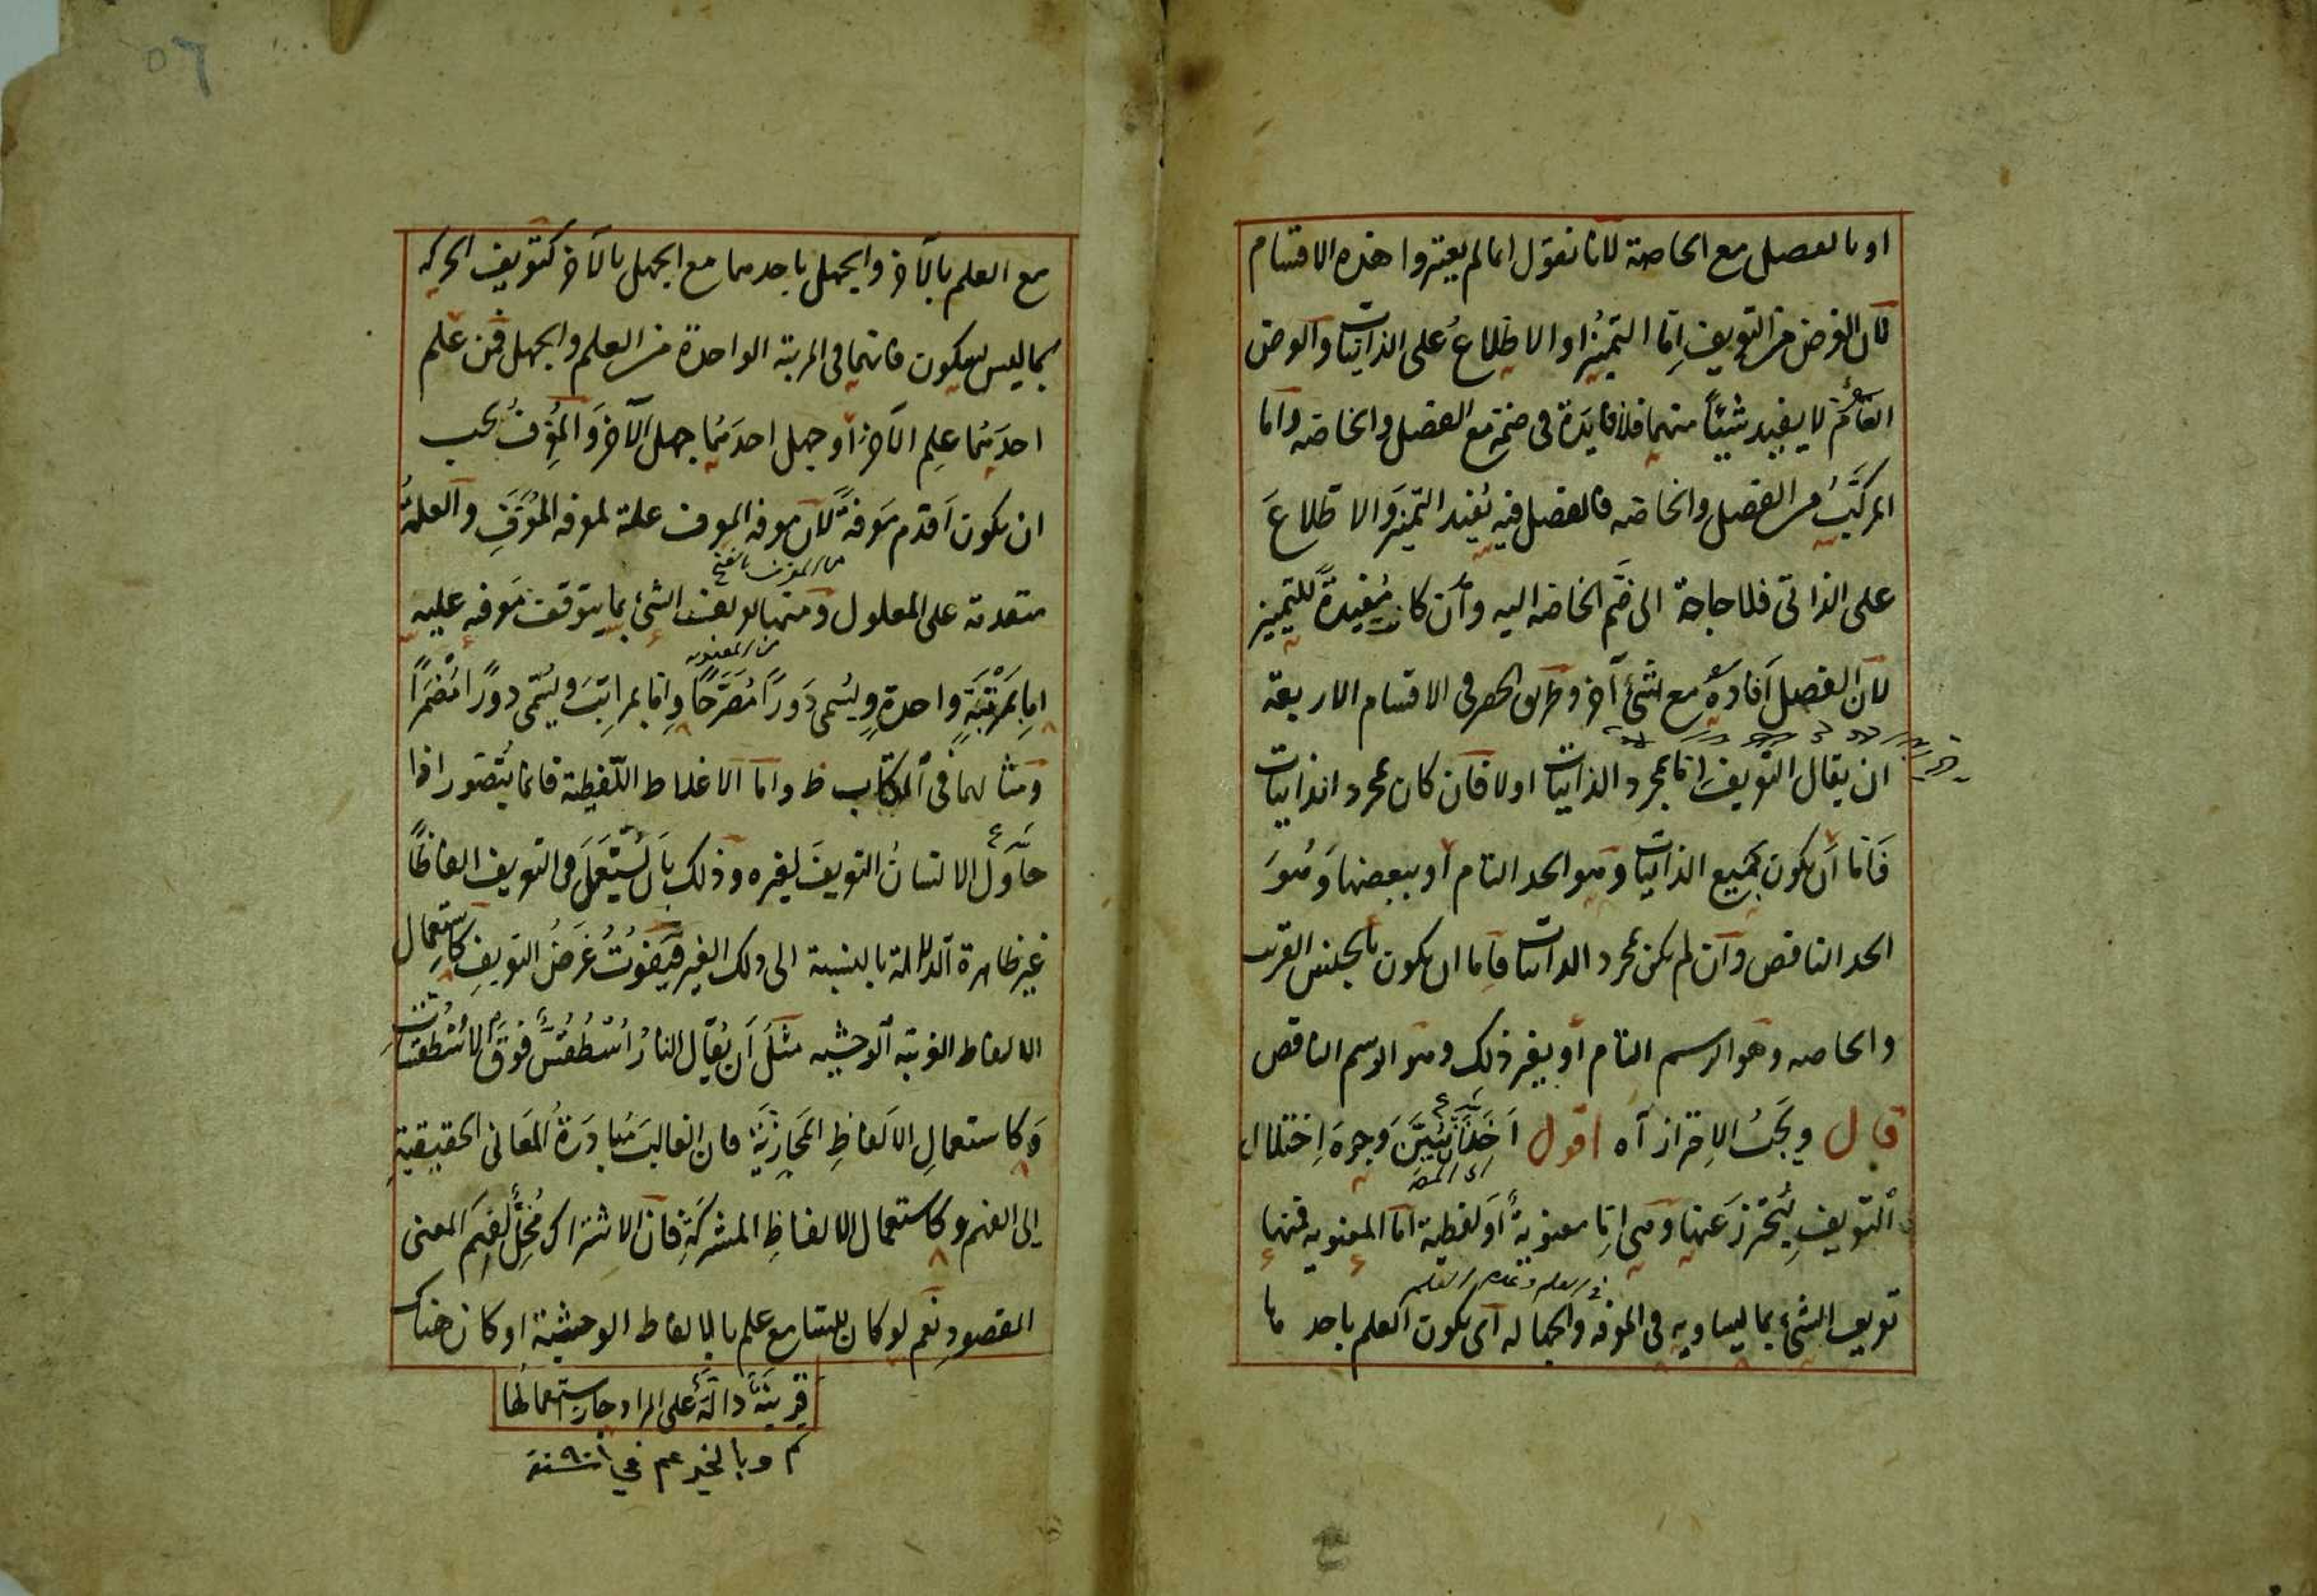 او بالفصل مع الخاصة لانا نقول انما لم يعتبروا هذه الاقسام
لان الغرض من التعريف اما التميز او الاطلاع على الذاتيات والعرض
العام لا يفيد شيئا منهما فلا فايدة في ضمه مع الفصل والخاصه واما
المركب من الفصل والخاصه فالفصل فيه يفيد التميز والاطلاع
على الذاتي فلا حاجة الى ضم الخاصه اليه وان كانت مفيدة للتميز
لان الفصل افاده مع شئ آخر وطريق الحصر في الاقسام الاربعة
ان يقال التعريف اما بمجرد الذاتيات او لا فان كان بمجرد الذاتيات
فاما ان يكون بجميع الذاتيات وهو الحد التام او ببعضها وهو
الحد الناقص وان لم يكن بمجرد الذاتيات فاما ان يكون بالجنس القريب
والخاصه وهو الرسم التام او بغير ذلك وهو الرسم الناقص
قال ويجب الاحتراز آه اقول اخذ ان يبين وجوه اختلال
اى المص
التعريف ليحترز عنها وهى اما معنوية او لفظية اما المعنويه فمنها
فى العلم وعدم العلم
تعريف الشئ بما يساويه فى المعرفه والجهاله اى يكون العلم باحدهما
مع العلم بالآخر والجهل باحدهما مع الجهل بالآخر كتعريف الحركه
بما ليس بسكون فانهما فى المرتبة الواحدة من العلم والجهل فمن علم
احديهما علم الآخر او جهل احديهما جهل الآخر والمعرف يجب
ان يكون اقدم معرفة لان معرفه المعرف علة لمعرفه المعرف والعلة
من المعرف بالفتح
متقدمة على المعلول ومنها تعريف الشئ بما يتوقف معرفه عليه
من المعنويه
اما بمرتبة واحدة ويسمى دورا مصرحا واما بمراتب ويسمى دورا مضمرا
ومثالهما فى الكتاب ظ واما الاغلاط اللفظية فانما يتصور اذا
حاول الانسان التعريف لغيره وذلك بان يستعمل فى التعريف الفاظا
غير ظاهرة الدلالة بالنسبة الى ذلك الغير فيفوت غرض التعريف كاستعمال
الالفاظ الغريبة الوحشيه مثل ان يقال النار اسطقس فوق الاسطقسات
وكاستعمال الالفاظ المجازية فان الغالب مبادرة المعانى الحقيقية
الى الفهم وكاستعمال الالفاظ المشتركة فان الاشتراك مخل لفهم المعنى
المقصود نعم لو كان للسامع علم بالالفاظ الوحشية او كان هناك
قرينة دالة على المراد جاز استعمالها
تم وبالخير عم في سنة